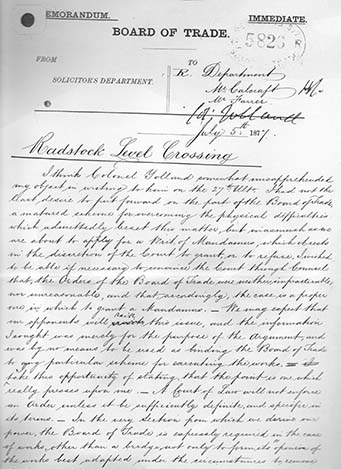 MEMORANDUM.
IMMEDIATE.
BOARD OF TRADE.
5823
FROM
TO
SOLICITOR'S DEPARTMENT.
R. Department
Mr Calcraft
Mr Farrer
July 5th 1877.
Radstock Level Crossing
I think Colonel Yolland somewhat misapprehended
my object in writing to him on the 27 Ulto. I had not the
least desire to put forward on the part of the Board of Trade
a matured scheme for overcoming the physical difficulties
which admittedly beset this matter, but inasmuch as we
are about to apply for a Writ of Mandamus, which it rests
in the discretion of the Court to grant or to refuse, I wished
to be able if necessary to convince the Court through Counsel
that, the Orders of the Board of Trade were neither impracticable,
nor unreasonable, and that accordingly, the case is a proper
one in which to grant a Mandamus. – We may expect that
our opponents will raise this issue, and the information
I sought was merely for the purpose of the Argument, and
was by no means to be used as binding the Board of Trade
to any particular scheme for executing the works. – I
take this opportunity of stating, that the point is one which
really presses upon me. – A Court of Law will not enforce
an Order unless it be sufficiently definite, and specific in
its terms. – In the very section from which we derive our
power, the Board of Trade is expressly required in the case
of works, other than a bridge, not only to form its opinion of
the works best adapted under the circumstances to remove